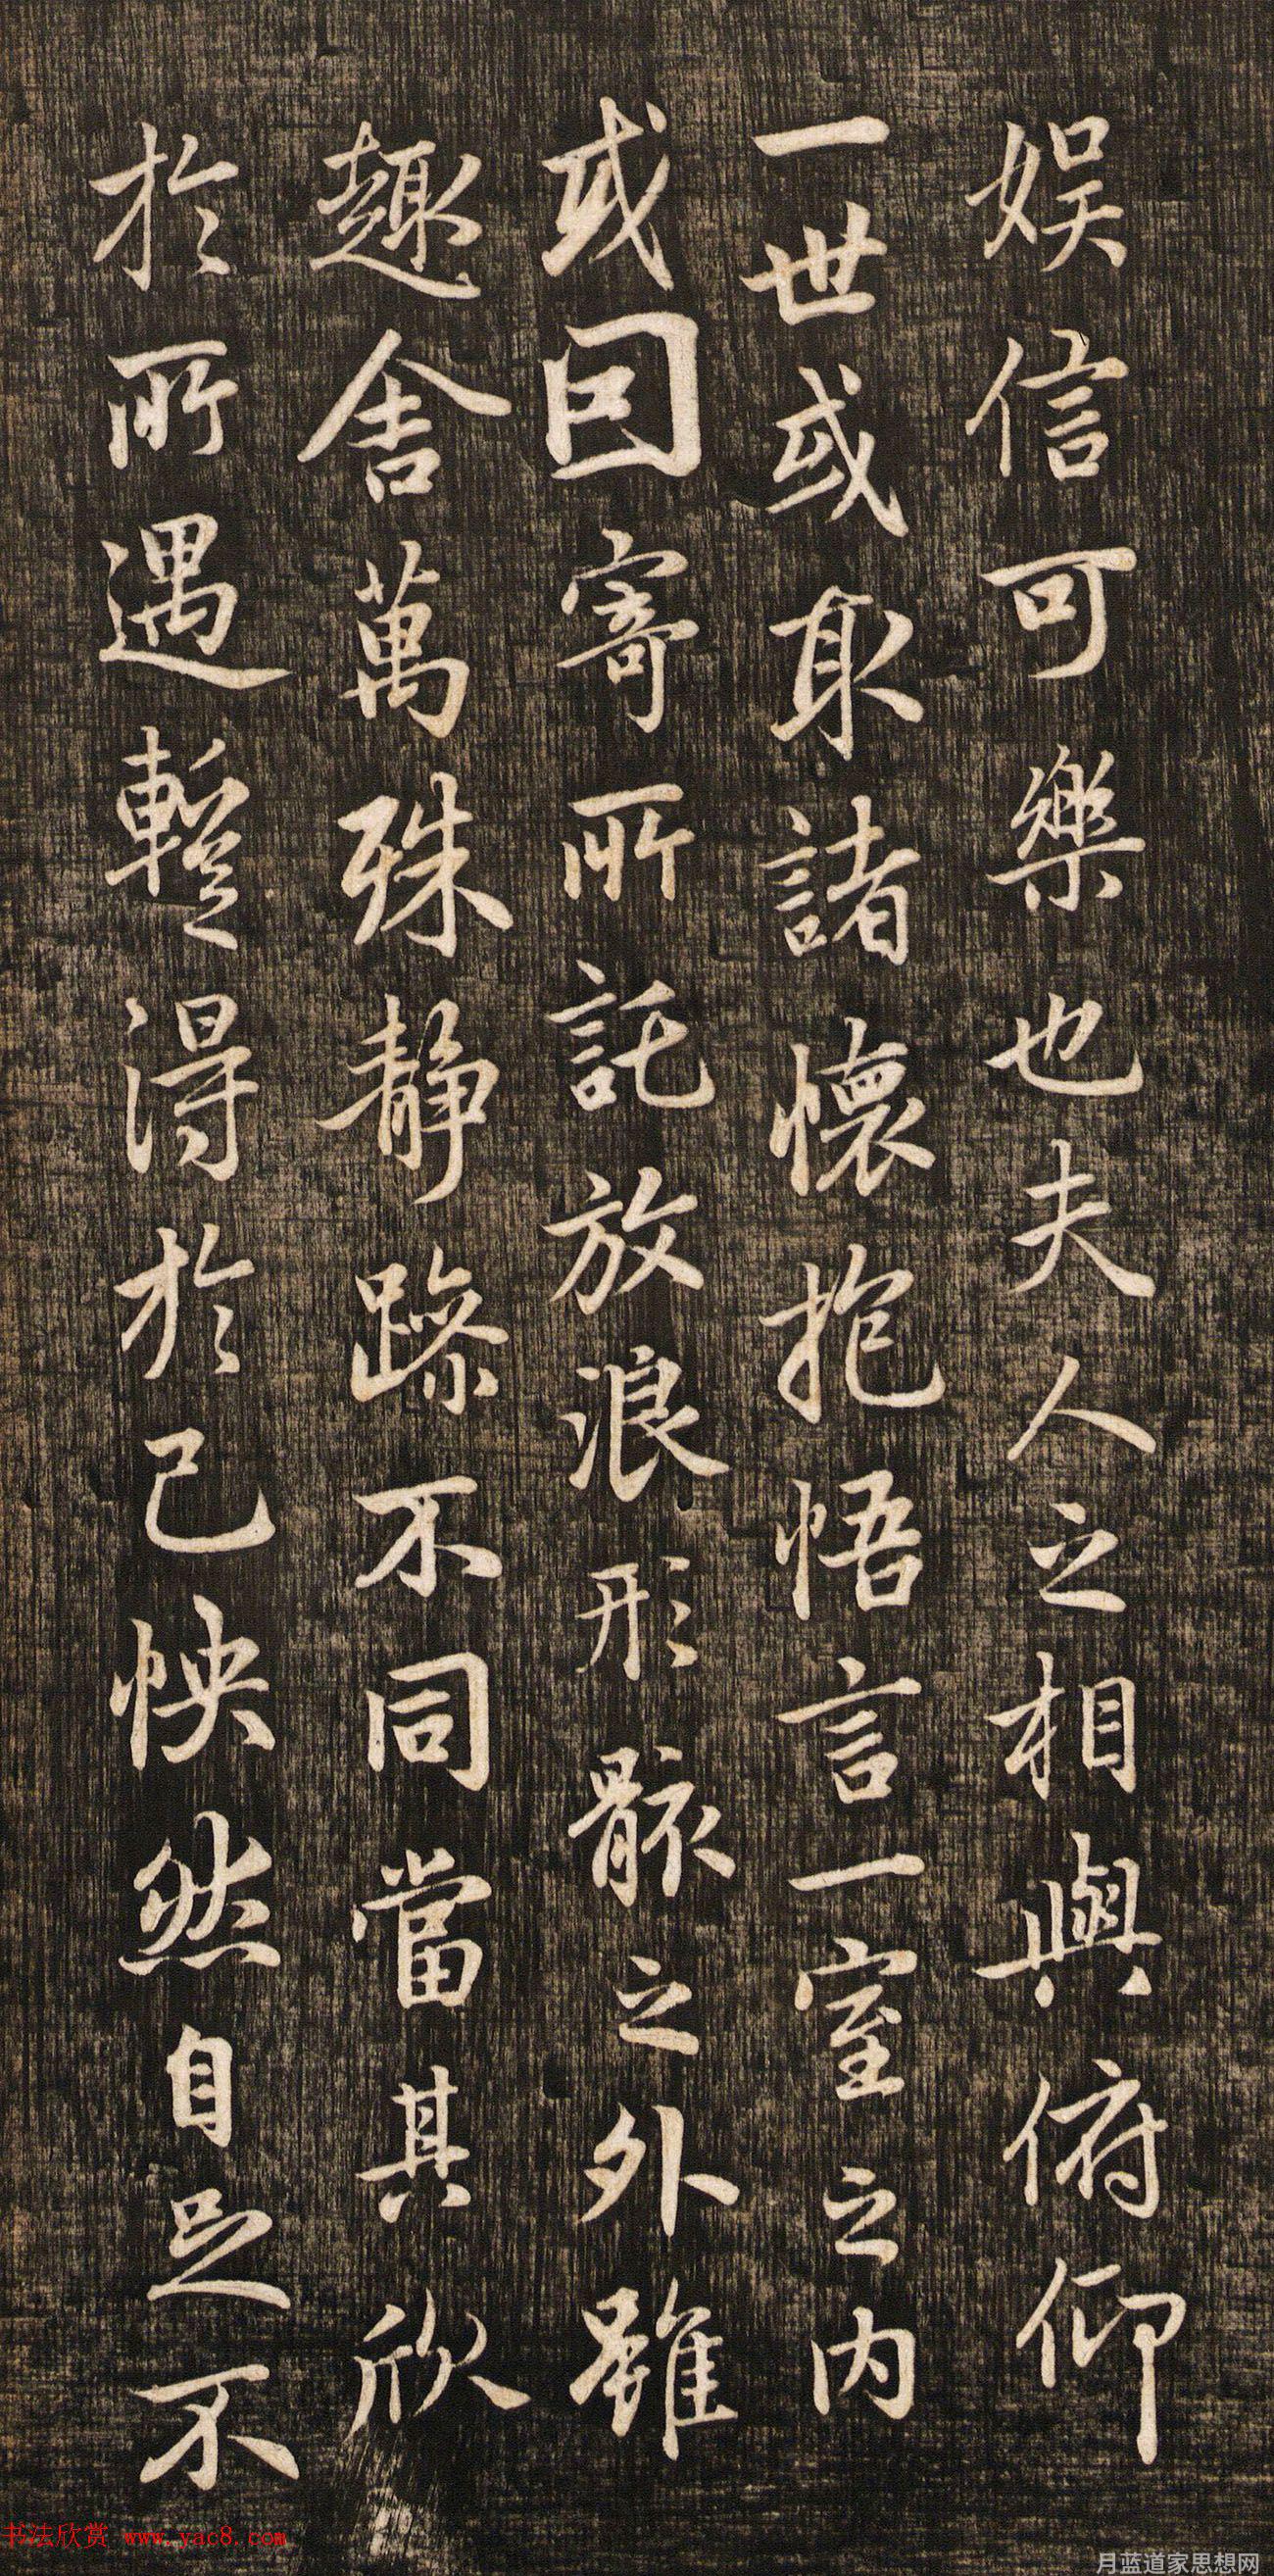 娛信可樂也夫人之相與俯仰
一世或取諸懷抱悟言一室之内
或因寄所託放浪形骸之外雖
趣舍萬殊静躁不同當其欣
於所遇暫得於己怏然自足不
书法欣赏 www.yac8.com
月蓝道家思想网